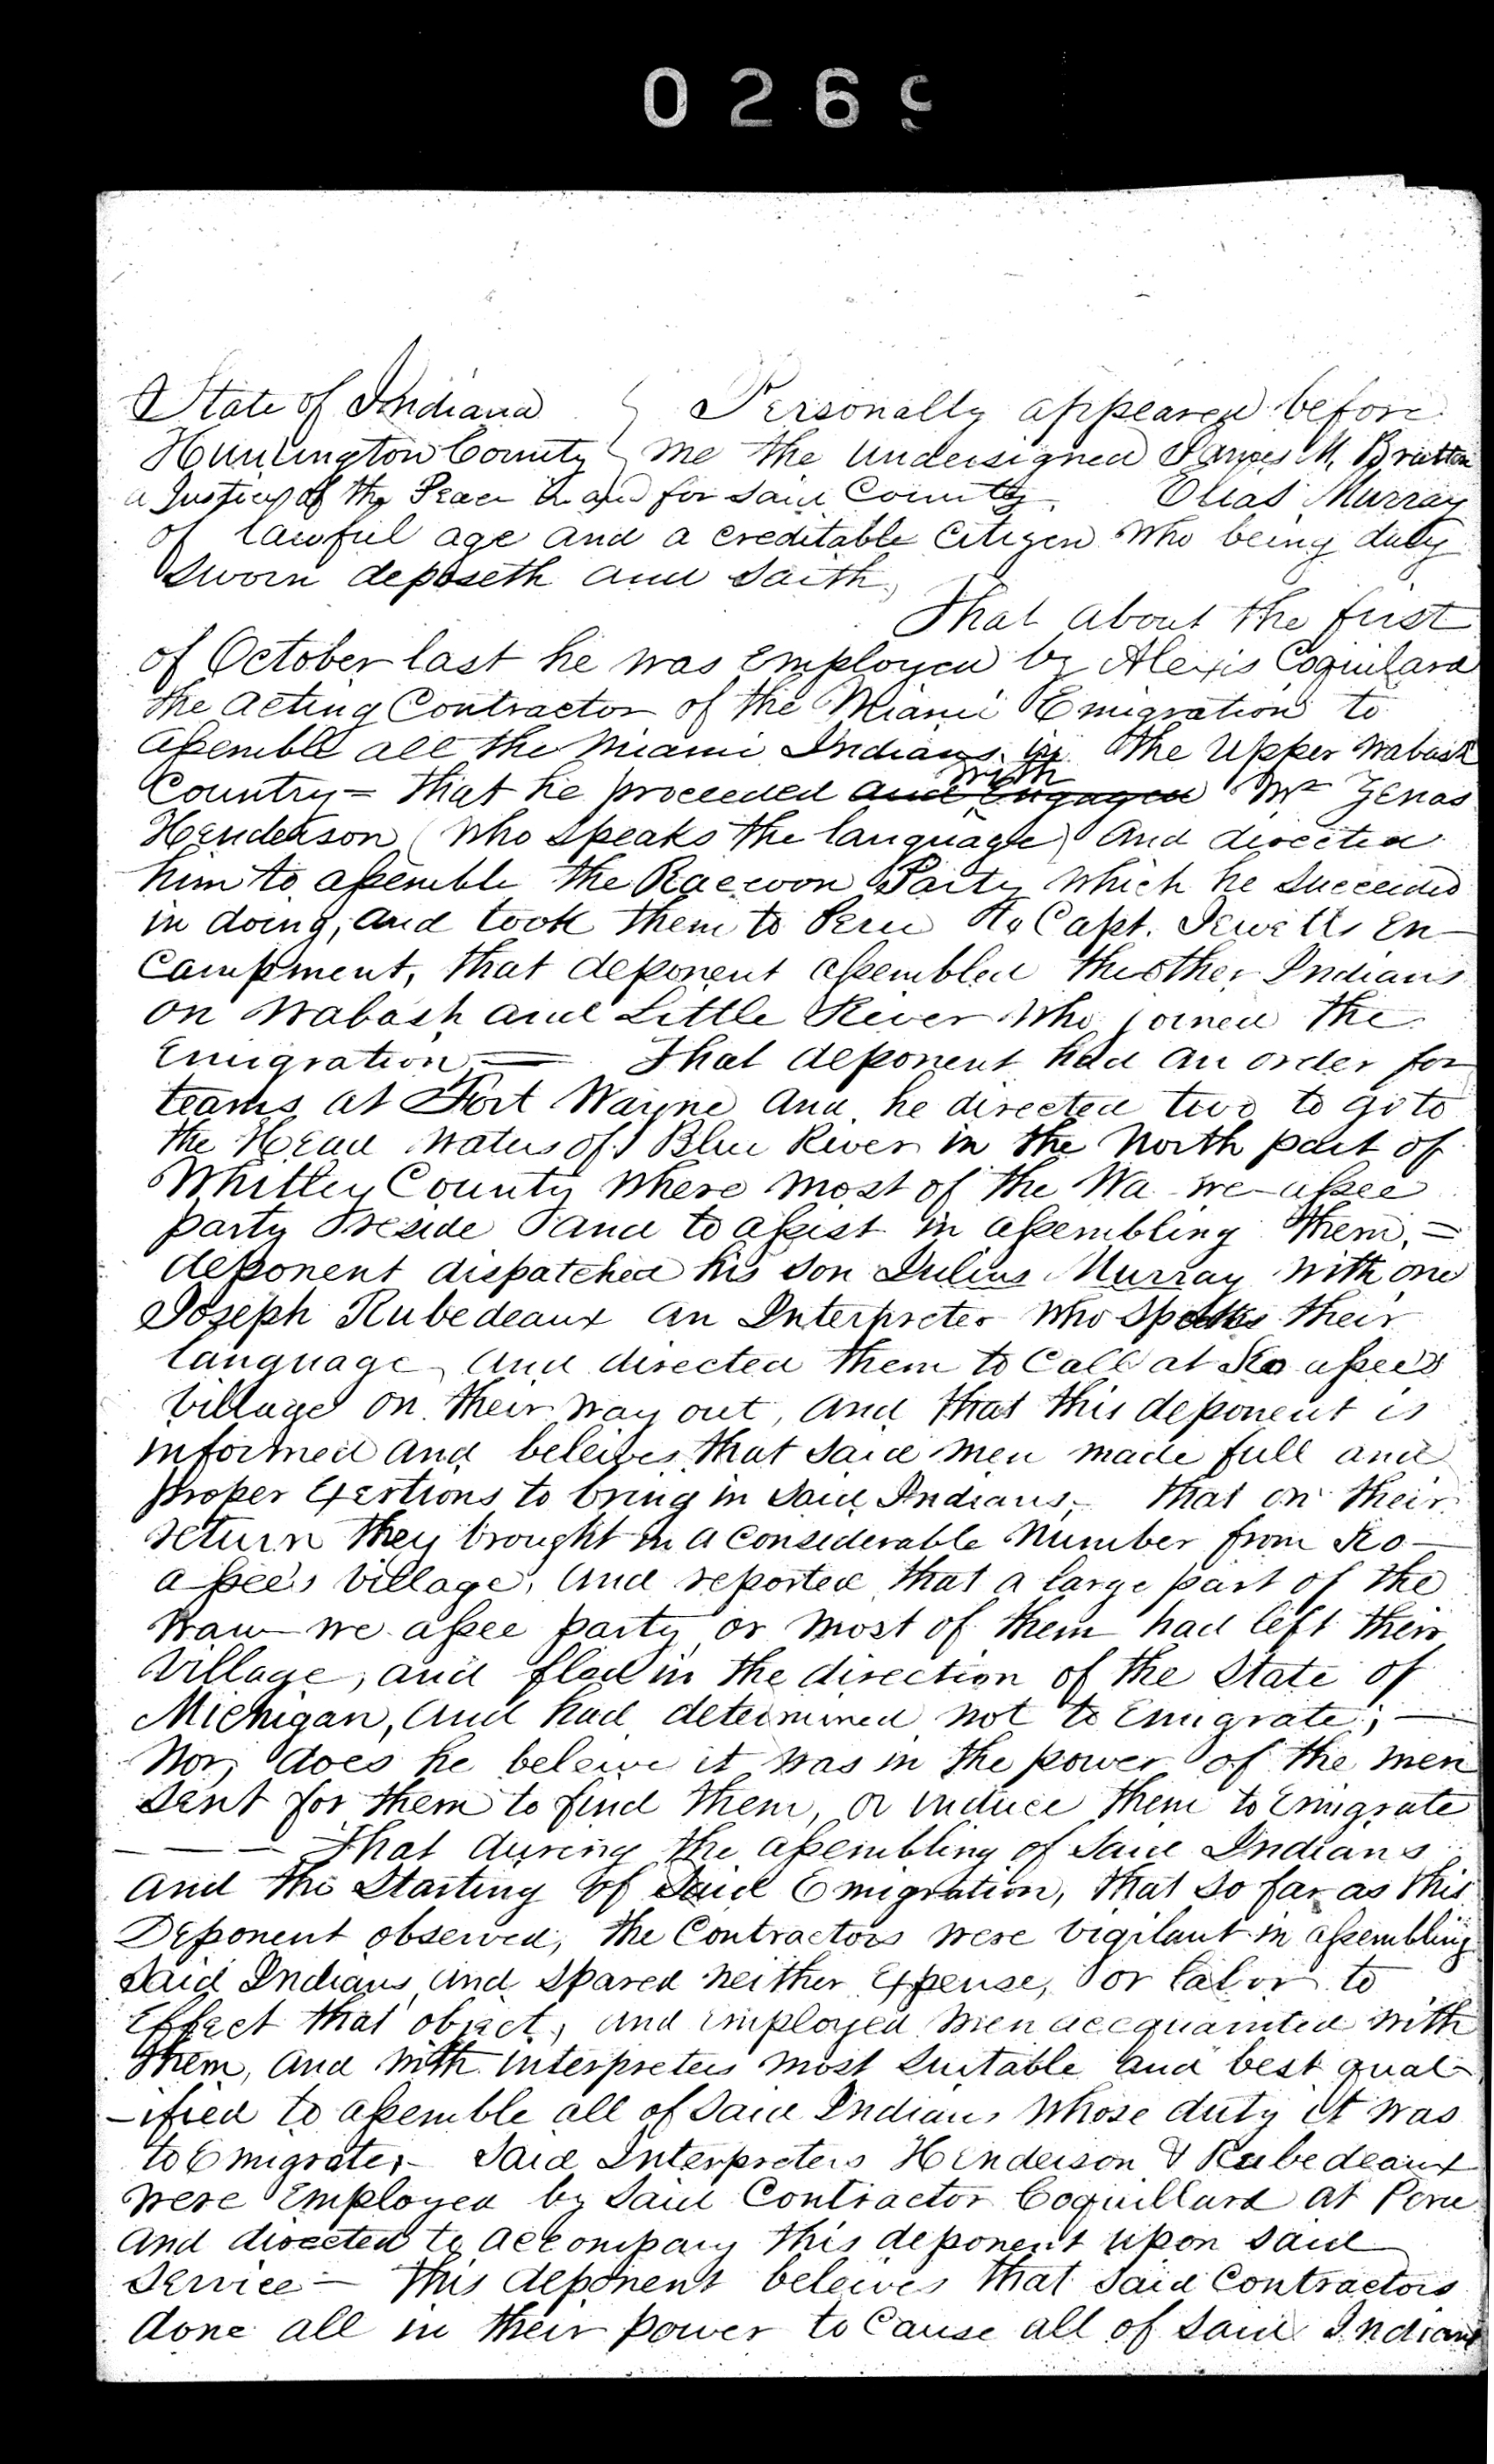 0269
State of Indiana } Personally appeared before
Huntington County } me the undersigned James M. Bratton
a Justice of the Peace in and for said County. Elias Murray
of lawful age and a creditable Citizen who being duly
sworn deposeth and saith,
That about the first
of October last he was employed by Alexis Coquilard
the acting Contractor of the Miami Emigration to
assemble all the Miami Indians in the Upper Wabash
with
Country = that he proceeded and engaged Mr Zenas
Henderson (who speaks the language) and directed
him to assemble the Raccoon Party which he succeeded
in doing, and took them to Peru to Capt. Jewetts En-
campment, that deponent assembled the other Indians
on Wabash and Little River who joined the
Emigration — That deponent had an order for
teams at Fort Wayne and he directed two to go to
the Head waters of Blue River in the North part of
Whitley County where most of the Wa-we-assee
party reside and to assist in assembling them. =
deponent dispatched his son Julius Murray with one
Joseph Rubedeaux an Interpreter who speaks their
language, and directed them to Call at Ko assee's
Village on their way out, and that this deponent is
informed and beleives that said men made full and
proper exertions to bring in said Indians, that on their
return they brought in a considerable number from Ko-
assee's Village, and reported that a large part of the
Waw-we assee party, or most of them had left their
Village, and fled in the direction of the State of
Michigan, and had determined not to Emigrate; —
Nor, does he beleive it was in the power of the men
sent for them to find them, or induce them to Emigrate
— — — That during the assembling of said Indians
and the starting of said Emigration, that so far as this
Deponent observed, the Contractors were vigilant in assembling
said Indians, and spared neither Expense, or labor to
Effect that object, and employed men accquainted with
them, and with interpreters most suitable and best qual-
-ified to assemble all of said Indians whose duty it was
to Emigrate, - Said Interpreters Henderson & Rubedeaux
were employed by said Contractor Coquillard at Peru
and directed to accompany this deponent upon said
Service — This deponent beleives that said Contractors
done all in their power to cause all of said Indians